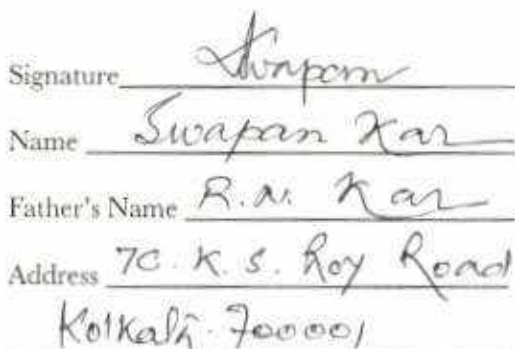 Signature Swapan
Name Swapan Kar
Father's Name R.N. Kar
Address 7C. K. S. Roy Road
Kolkata. 700001